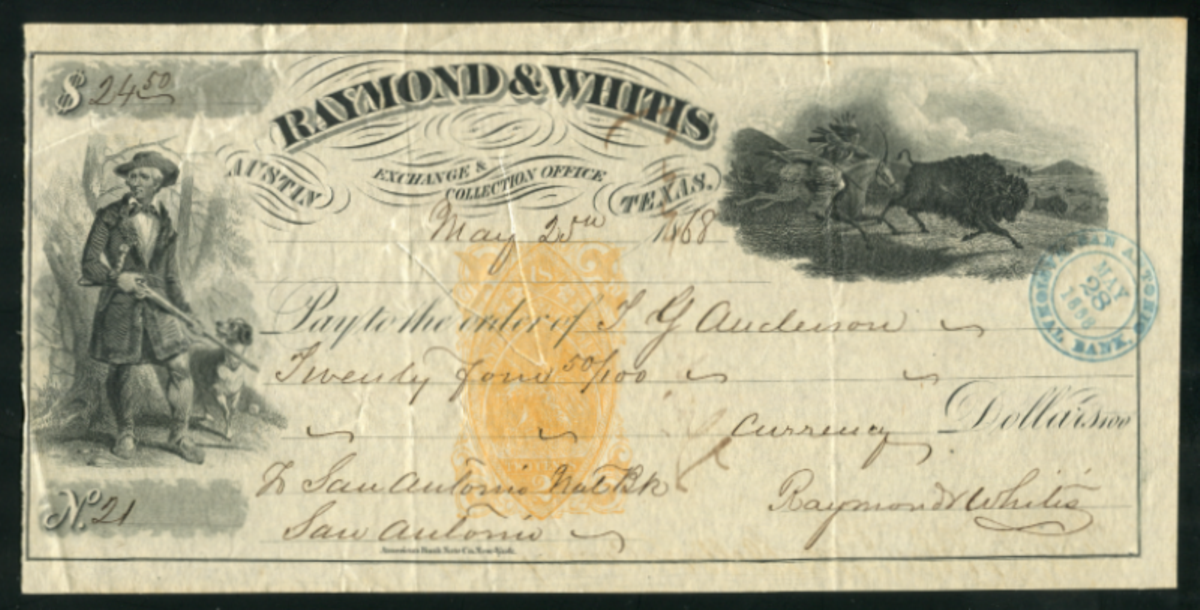 $ 24 50
RAYMOND & WHITIS
AUSTIN EXCHANGE & COLLECTION OFFICE TEXAS.
May 25th 1868
Pay to the order of T G Anderson
Twenty Four 50/100
Currency Dollars
To San Antonio Nat Bk
San Antonio
Raymond & Whitis
No. 21
American Bank Note Co. New York.
SAN ANTONIO NATIONAL BANK.
MAY
28
1868